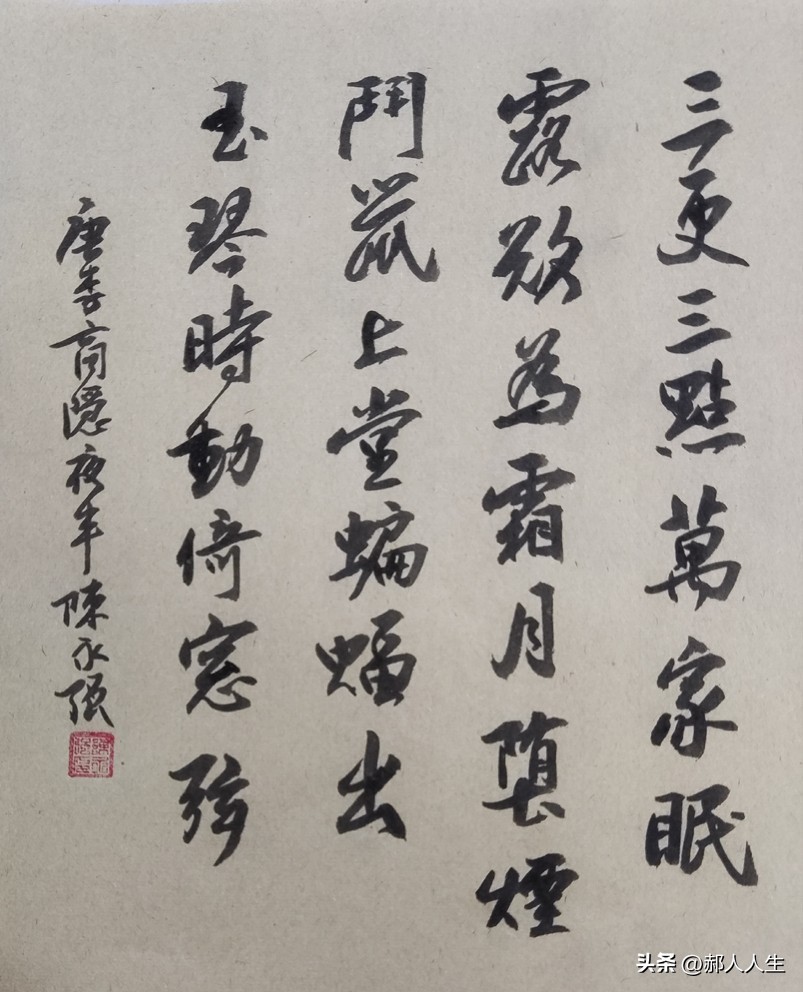 三更三點萬家眠
露欲為霜月墮煙
鬥鼠上堂蝙蝠出
玉琴時動倚窓弦
唐李商隱夜半 陳永强
头条 @郝人人生